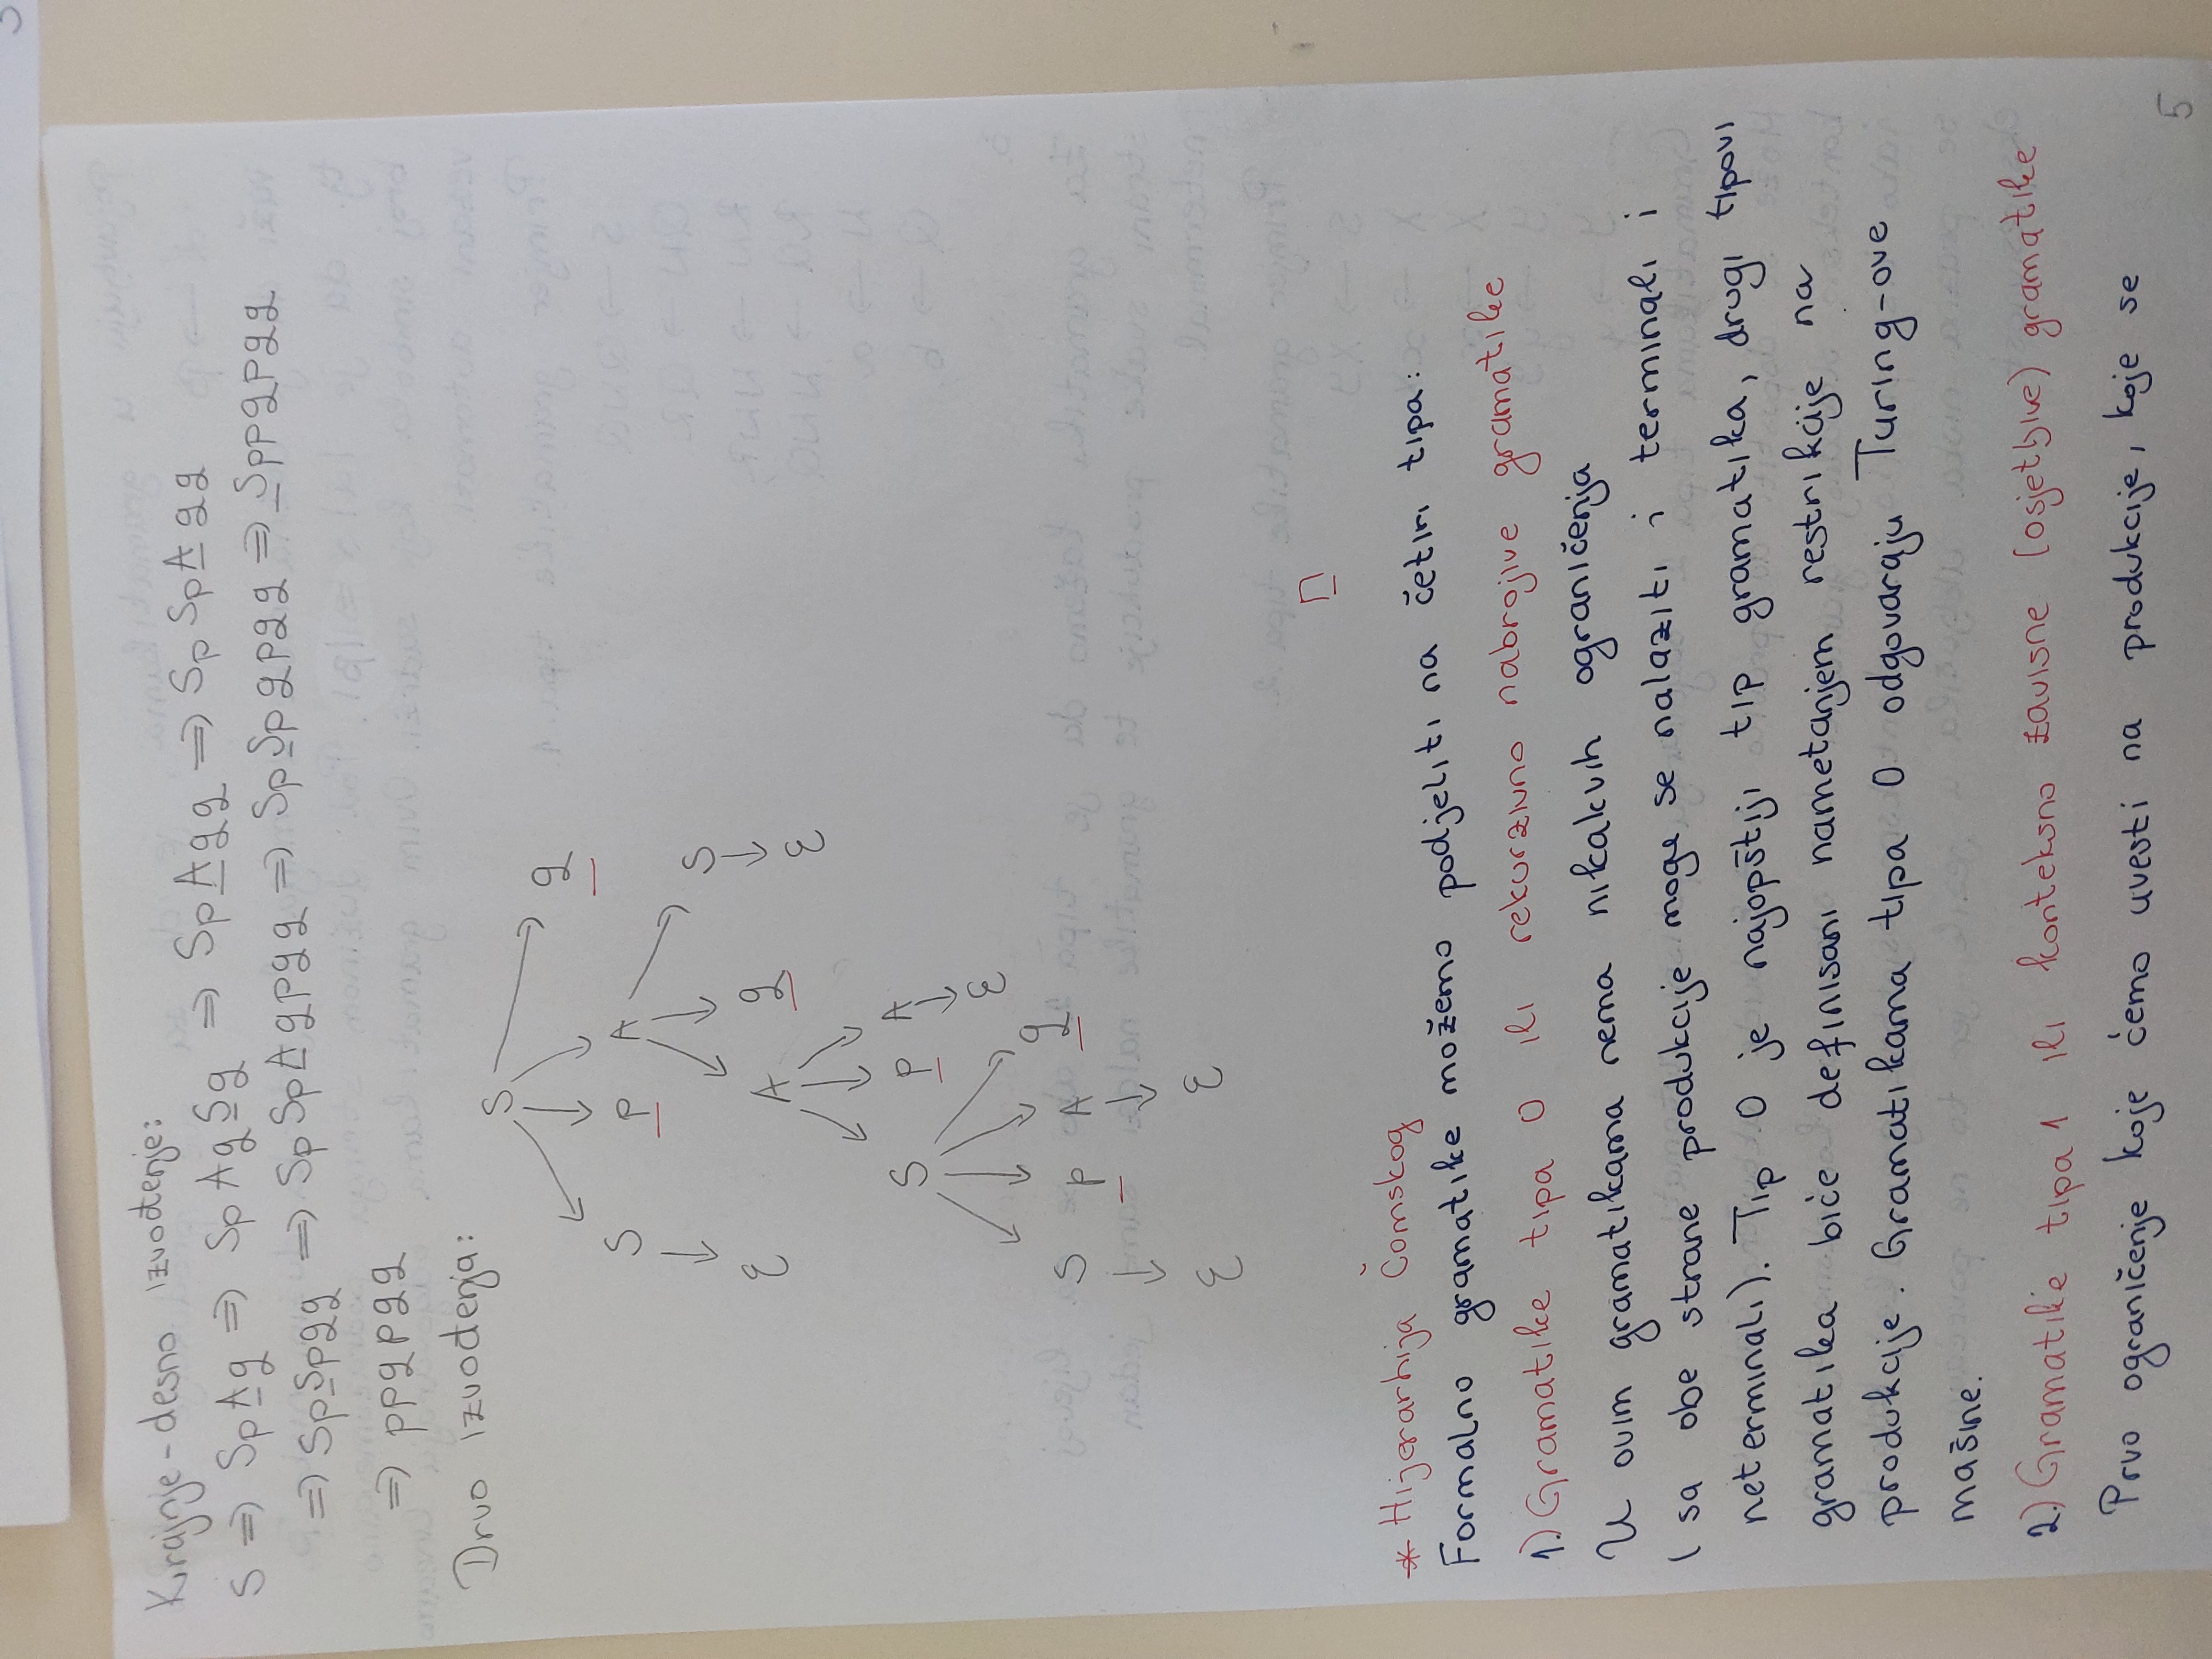 Krajnje-desno izvođenje:
S ⇒ SpAq ⇒ SpAqSq ⇒ SpAqq ⇒ SpSpAqq
⇒ SpSpqq ⇒ SpSpAqpqq ⇒ SpSpqpqq ⇒ Sppqpqq
⇒ ppqpqq
Drvo izvođenja:
S
q
S p A
S
ε A q
ε
S p A
ε
q
S p A
ε ε
* Hijerarhija Čomskog
Formalno gramatike možemo podjeliti na četiri tipa:
1.) Gramatike tipa 0 ili rekurzivno nabrojive gramatike
U ovim gramatikama nema nikakvih ograničenja
(sa obe strane produkcije mogu se nalaziti i terminali i
neterminali). Tip 0 je najopštiji tip gramatika, drugi tipovi
gramatika biće definisani nametanjem restrikcije na
produkcije. Gramatikama tipa 0 odgovaraju Turing-ove
mašine.
2.) Gramatike tipa 1 ili konteksno zavisne (osjetljive) gramatike
Prvo ograničenje koje ćemo uvesti na produkcije, koje se
5